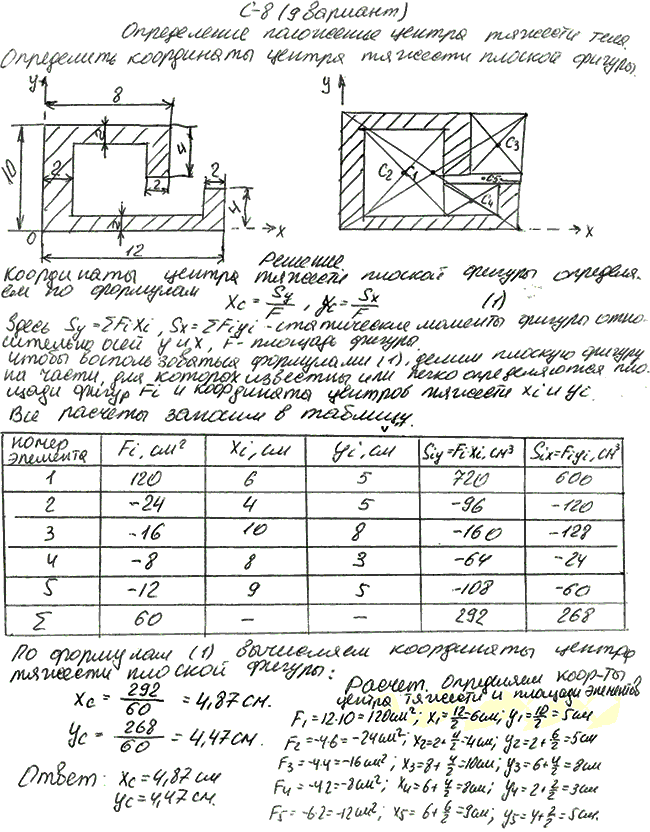 С-8 (9 вариант)
Определение положение центра тяжести тела.
Определить координаты центра тяжести плоской фигуры.
y
8
2
4
10
2
2
2
4
2
0
x
12
y
C3
C2
C1
C5
C4
x
Решение
Координаты центра тяжести плоской фигуры определя-
ем по формулам
Xc = Sy/F , yc = Sx/F (1)
Здесь Sy = ΣFiXi, Sx = ΣFiyi - статические моменты фигуры отно-
сительно осей y и x, F - площадь фигуры.
чтобы воспользоваться формулами (1), делим плоскую фигуру
на части, для которых известны или легко определяются пло-
щади фигур Fi и координаты центров тяжести xi и yi.
Все расчеты заносим в таблицу.
номер элемента Fi, см² Xi, см yi, см Siy=FiXi, см³ Six=Fiyi, см³
1 120 6 5 720 600
2 -24 4 5 -96 -120
3 -16 10 8 -160 -128
4 -8 8 3 -64 -24
5 -12 9 5 -108 -60
Σ 60 — — 292 268
По формулам (1) вычисляем координаты центра
тяжести плоской фигуры:
Xc = 292/60 = 4,87 см.
yc = 268/60 = 4,47 см.
Ответ: Xc = 4,87 см
yc = 4,47 см.
Расчет. Определяем коор-ты
центра тяжести и площади элементов
F1 = 12·10 = 120 см²; x1 = 12/2 = 6 см; y1 = 10/2 = 5 см
F2 = -4·6 = -24 см²; x2 = 2+4/2 = 4 см; y2 = 2+6/2 = 5 см
F3 = -4·4 = -16 см²; x3 = 8+4/2 = 10 см; y3 = 6+4/2 = 8 см
F4 = -4·2 = -8 см²; x4 = 6+4/2 = 8 см; y4 = 2+2/2 = 3 см
F5 = -6·2 = -12 см²; x5 = 6+6/2 = 9 см; y5 = 4+2/2 = 5 см.